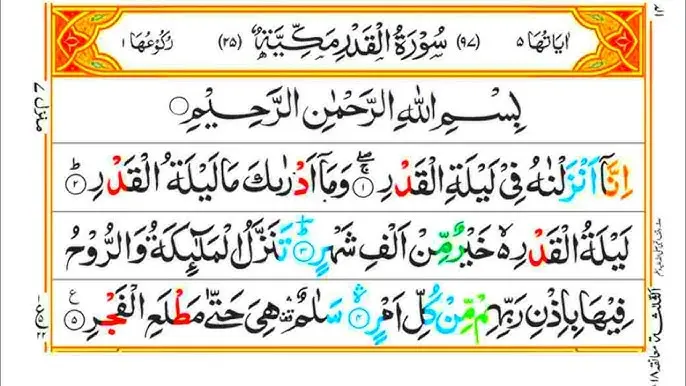 اٰيَاتُهَا ٥ (٩٧) سُوْرَةُ الْقَدْرِ مَكِّيَّةٌ (٢٥) رُكُوْعُهَا ١
بِسْمِ اللّٰهِ الرَّحْمٰنِ الرَّحِيْمِ
اِنَّاۤ اَنْزَلْنٰهُ فِيْ لَيْلَةِ الْقَدْرِ ۚۖ ١ وَمَاۤ اَدْرٰىكَ مَا لَيْلَةُ الْقَدْرِ ؕ ٢
لَيْلَةُ الْقَدْرِ ۙ۬ خَيْرٌ مِّنْ اَلْفِ شَهْرٍ ؕ ٣ تَنَزَّلُ الْمَلٰٓئِكَةُ وَالرُّوْحُ
فِيْهَا بِاِذْنِ رَبِّهِمْ مِّنْ كُلِّ اَمْرٍ ۛ ٤ سَلٰمٌ ۛ هِيَ حَتّٰى مَطْلَعِ الْفَجْرِ ٥ ع
منزل ٧